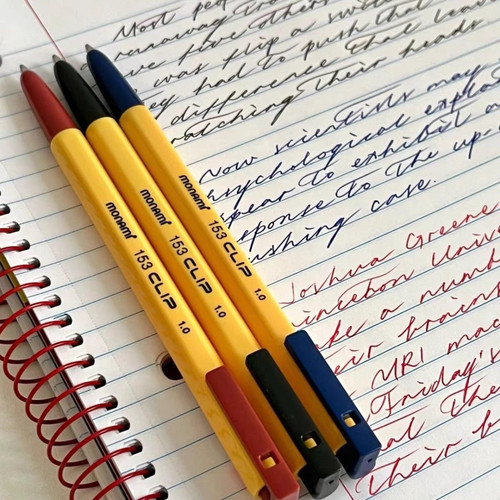 Most peo
runaway tro
have others
was flip a switch
they had to push that
difference that leav
scratching their heads
Now scientists may
psychological explo
appear to exhibit
response to the up
pushing case.
Joshua Greene
Princeton Unive
a numb
their brains
MRI mac
Friday's
the
Their b
monami 153 CLIP 1.0
monami 153 CLIP 1.0
monami 153 CLIP 1.0